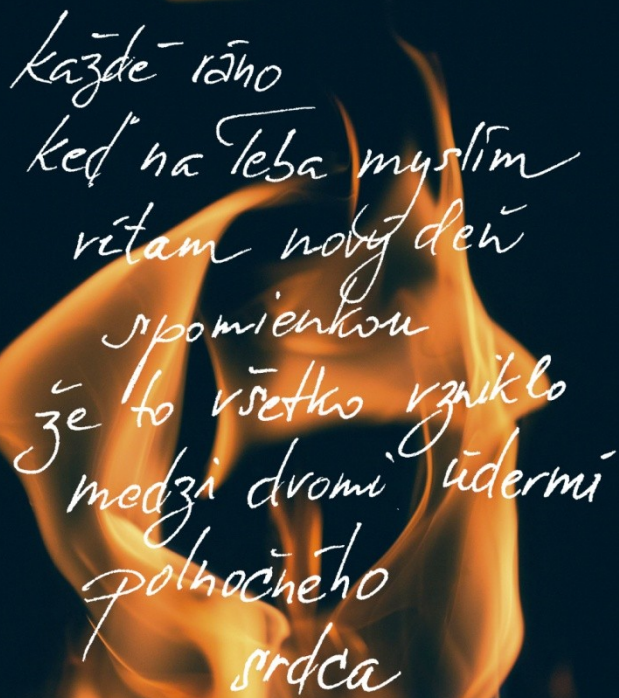 každé ráno
keď na Teba myslím
vítam nový deň
spomienkou
že to všetko vzniklo
medzi dvomi údermi
polnočného
srdca